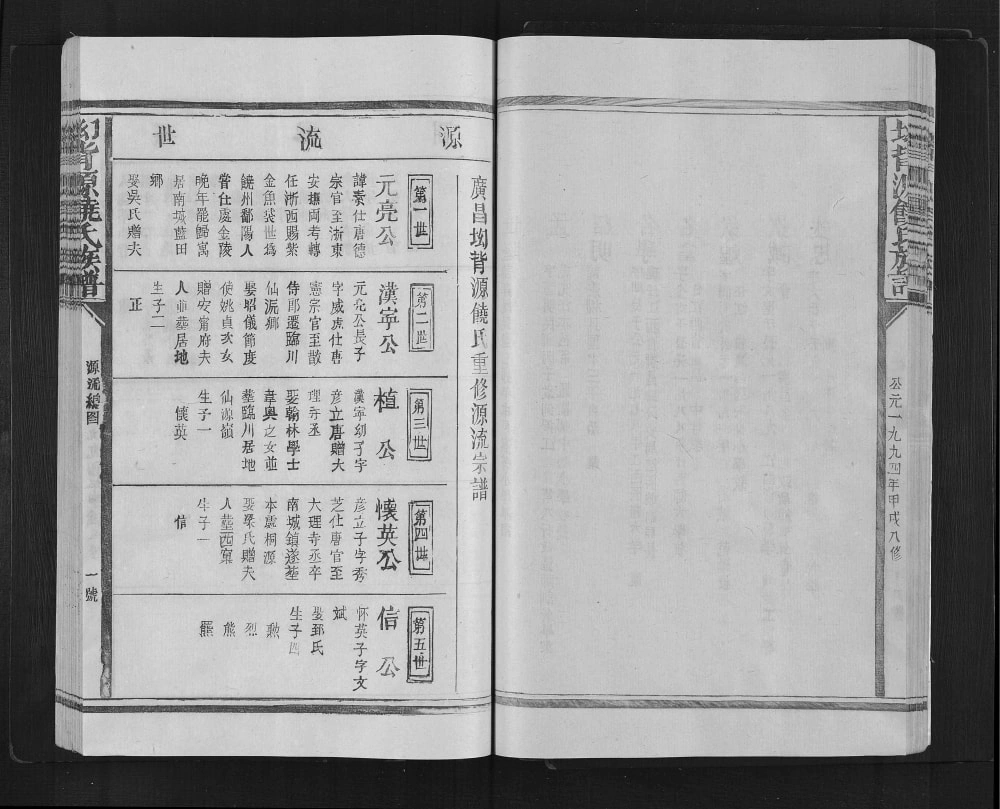 公元一九九四年甲戌八修
廣昌坳背源饒氏重修源流宗譜
源流世
第一世
元亮公
諱素仕唐德
宗官至浙東
安撫両考轉
任浙西賜紫
金魚袋世爲
饒州鄱陽人
嘗仕處金陵
晚年罷歸寓
居南城藍田
鄉
娶吳氏贈夫
第二世
漢寧公
元亮公長子
字威虎仕唐
憲宗官至散
侍郎遷臨川
仙沠鄉
娶昭儀節度
使姚貞次女
贈安甯府夫
人並塟居地
生子二
正
第三世
植公
漢寧幼子字
彦立唐贈大
理寺丞
娶翰林學士
韋奥之女並
塟臨川居地
仙源嶺
生子一
懷英
第四世
懷英公
彦立子字秀
芝仕唐官至
大理寺丞卒
南城鎮遂塟
本處桐源
娶梁氏贈夫
人塟西窠
生子一
信
第五世
信公
怀英子字文
斌
娶郅氏
生子四
勲
烈
熊
羆
坳背源饒氏族譜
源流總图
一號